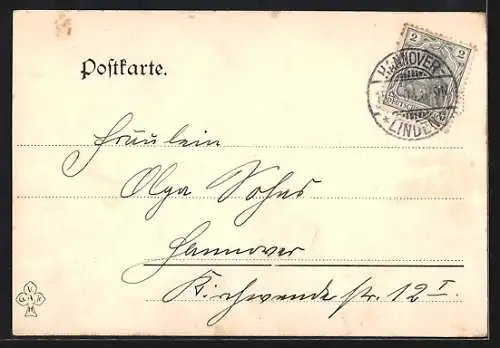 Postkarte.
2 2
HANNOVER
* LINDEN
Fräulein
Olga Sohns
Hannover
Kirchwenderstr. 12 I